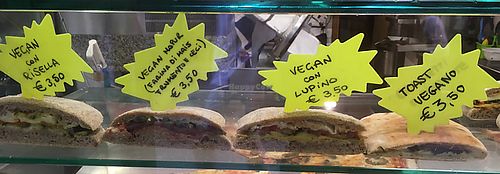 VEGAN
CON
RISELLA
€ 3,50
VEGAN NOIR
(FARINA DI MAIS
FRUMENTO E CECI)
€ 3,50
VEGAN
CON
LUPINO
€ 3,50
TOAST
VEGANO
€ 3,50